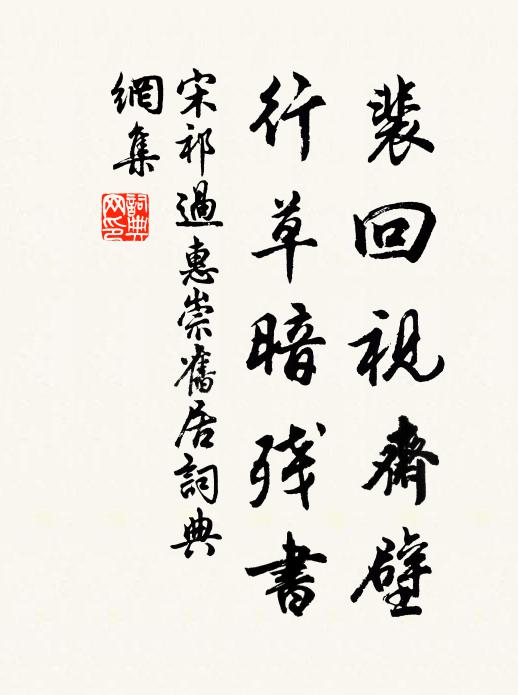 裴回視齋壁
行草暗残書
宋祁過惠崇舊居詞典
網集
詞典
网印